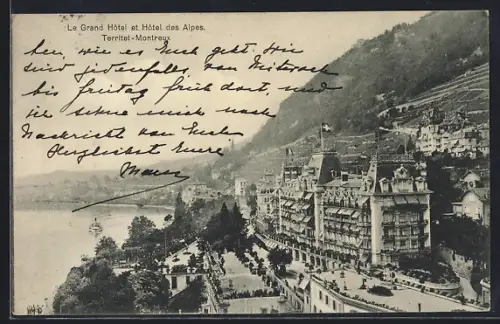 Le Grand Hôtel et Hôtel des Alpes.
Territet-Montreux
wie es Euch geht. Wir
sind jedenfalls von Mittwoch
bis Freitag früh dort, und
ich sehne mich nach
Nachricht von Euch
Herzlichst Eure